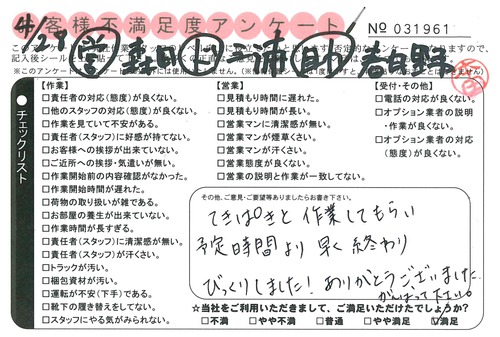 お客様不満足度アンケート
No 031961
4/29 営 森田 田 三浦 助 春日野
チェックリスト
【作業】
□責任者の対応(態度)が良くない。
□他のスタッフの対応(態度)が良くない。
□作業を見ていて不安がある。
□責任者(スタッフ)に好感が持てない。
□お客様への挨拶が出来ていない。
□ご近所への挨拶・気遣いが無い。
□作業開始前の内容確認がなかった。
□作業開始時間が遅れた。
□荷物の取り扱いが雑である。
□お部屋の養生が出来ていない。
□作業時間が長すぎる。
□責任者(スタッフ)に清潔感が無い。
□責任者(スタッフ)が汗くさい。
□トラックが汚い。
□梱包資材が汚い。
□運転が不安(下手)である。
□靴下の履き替えをしてない。
□スタッフにやる気がみられない。
【営業】
□見積もり時間に遅れた。
□見積もり時間が長い。
□営業マンに清潔感が無い。
□営業マンが煙草くさい。
□営業マンが汗くさい。
□営業態度が良くない。
□営業の説明と作業が一致してない。
【受付・その他】
□電話の対応が良くない。
□オプション業者の説明
・作業が良くない。
□オプション業者の対応
(態度)が良くない。
その他、ご意見・ご要望等ありましたらお書き下さい。
てきぱきと作業してもらい
予定時間より早く終わり
びっくりしました! ありがとうございました
がんばって下さい。
☆当社をご利用いただきまして、ご満足いただけたでしょうか?
□不満 □やや不満 □普通 □やや満足 ☑満足